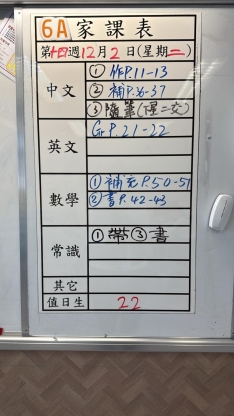 6A 家課表
第十四週12月2日(星期二)
中文 ① 作P.11-13
② 補P.36-37
③ 隨筆(下星二交)
英文 Gr P.21-22
數學 ① 補充P.50-51
② 書P.42-43
常識 ① 帶③書
其它
值日生 22